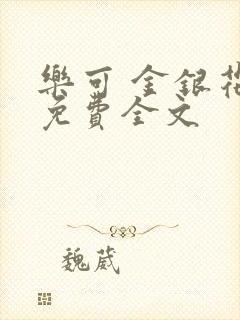 樂可 金銀花
免費全文
魏葳